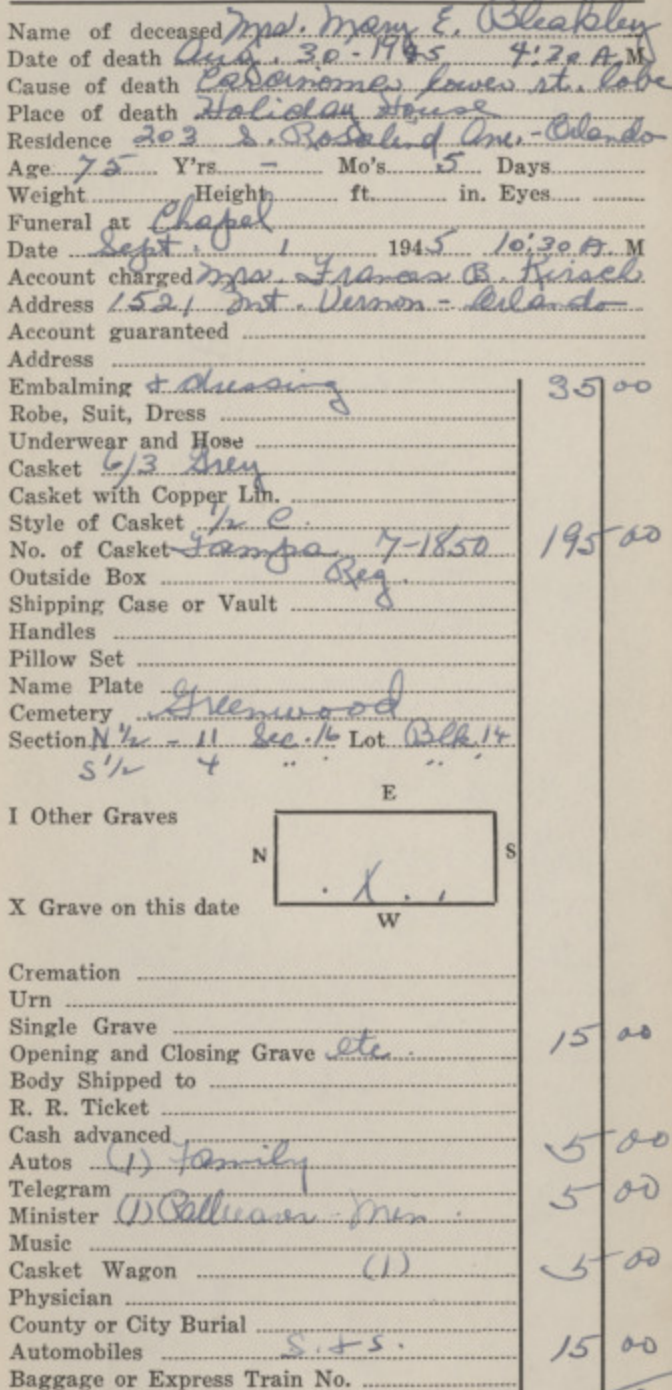 Name of deceased Mrs. Mary E. Bleakley
Date of death Aug. 30 - 1945 4:20 A.M
Cause of death Carcinoma lower rt. lobe
Place of death Holiday House
Residence 203 S. Rosalind Ave. - Orlando
Age 75 Y'rs. - Mo's. 5 Days
Weight Height ft. in. Eyes
Funeral at Chapel
Date Sept. 1 1945 10:30 A. M
Account charged Mrs. Frances B. Kirsch
Address 1521 Mt. Vernon - Orlando
Account guaranteed
Address
Embalming & dressing 35 00
Robe, Suit, Dress
Underwear and Hose
Casket 6/3 Grey
Casket with Copper Lin.
Style of Casket 1/2 C.
No. of Casket Tampa 7-1850 195 00
Outside Box Reg.
Shipping Case or Vault
Handles
Pillow Set
Name Plate
Cemetery Greenwood
Section N 1/2 - 11 Sec. 16 Lot Blk. 14
S 1/2 4 " " " "
E
I Other Graves
N S
X
X Grave on this date
W
Cremation
Urn
Single Grave
Opening and Closing Grave etc. 15 00
Body Shipped to
R. R. Ticket
Cash advanced
Autos (1) Family 5 00
Telegram
Minister (1) Min. 5 00
Music
Casket Wagon (1) 5 00
Physician
County or City Burial
Automobiles S. & S. 15 00
Baggage or Express Train No.